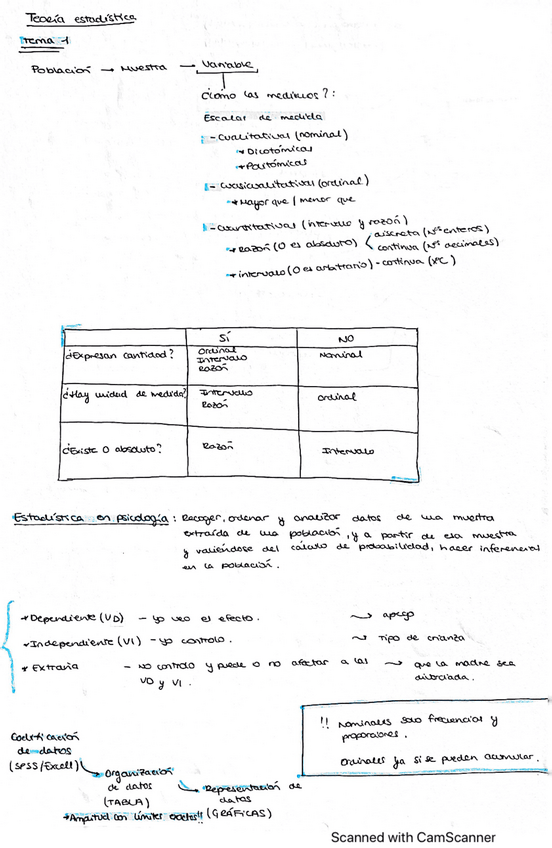 Teoría estadística
Tema 1
Población → Muestra → Variable
¿Cómo las medimos?:
Escalas de medida
- Cualitativas (nominal)
→ Dicotómicas
→ Politómicas
- Cuasicualitativas (ordinal)
→ Mayor que / menor que
- Cuantitativas (intervalo y razón)
→ Razón (0 es absoluto) < discreta (Nºs enteros)
continua (Nºs decimales)
→ intervalo (0 es arbitrario) - continua (xºC)
SÍ NO
¿Expresan cantidad? Ordinal Nominal
Intervalo
Razón
¿Hay unidad de medida? Intervalo Ordinal
Razón
¿Existe 0 absoluto? Razón Intervalo
Estadística en psicología: Recoger, ordenar y analizar datos de una muestra
extraída de una población, y a partir de esa muestra
y valiéndose del cálculo de probabilidad, hacer inferencias
en la población.
* Dependiente (VD) - yo veo el efecto. ~> apego
* Independiente (VI) - yo controlo. ~> Tipo de crianza
* Extraña - No controlo y puede o no afectar a las ~> que la madre sea
VD y VI. divorciada.
!! Nominales solo frecuencias y
proporciones.
Ordinales ya si se pueden acumular.
Codificación
de datos
(SPSS/Excell)
→ Organización
de datos
(TABLA)
→ Representación de
datos
(GRÁFICAS)
*Amplitud con límites exactos!!
Scanned with CamScanner